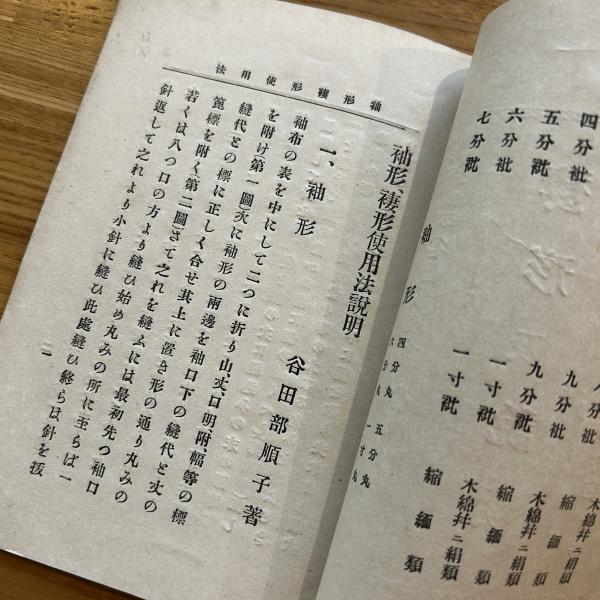 四分衪
五分衪
六分衪
七分衪
縮緬類
九分衪 木綿幷ニ絹類
九分衪 縮緬類
一寸衪 木綿幷ニ絹類
一寸衪 縮緬類
袖形
四分丸 五分丸
袖形褄形使用法
袖形、褄形使用法説明
谷田部順子著
一、袖形
袖布の表を中にして二つに折り山、丈、口明附、幅等の標
を附け第一圖次に袖形の兩邊を袖口下の縫代と丈の
縫代との標に正しく合せ其上に置き形の通り丸みの
篦標を附く第二圖さて之れを縫ふには最初先つ袖口
若くは八つ口の方より縫ひ始め丸みの所に至らば一
針返して之れより小針に縫ひ此處縫ひ終らば針を拔
一